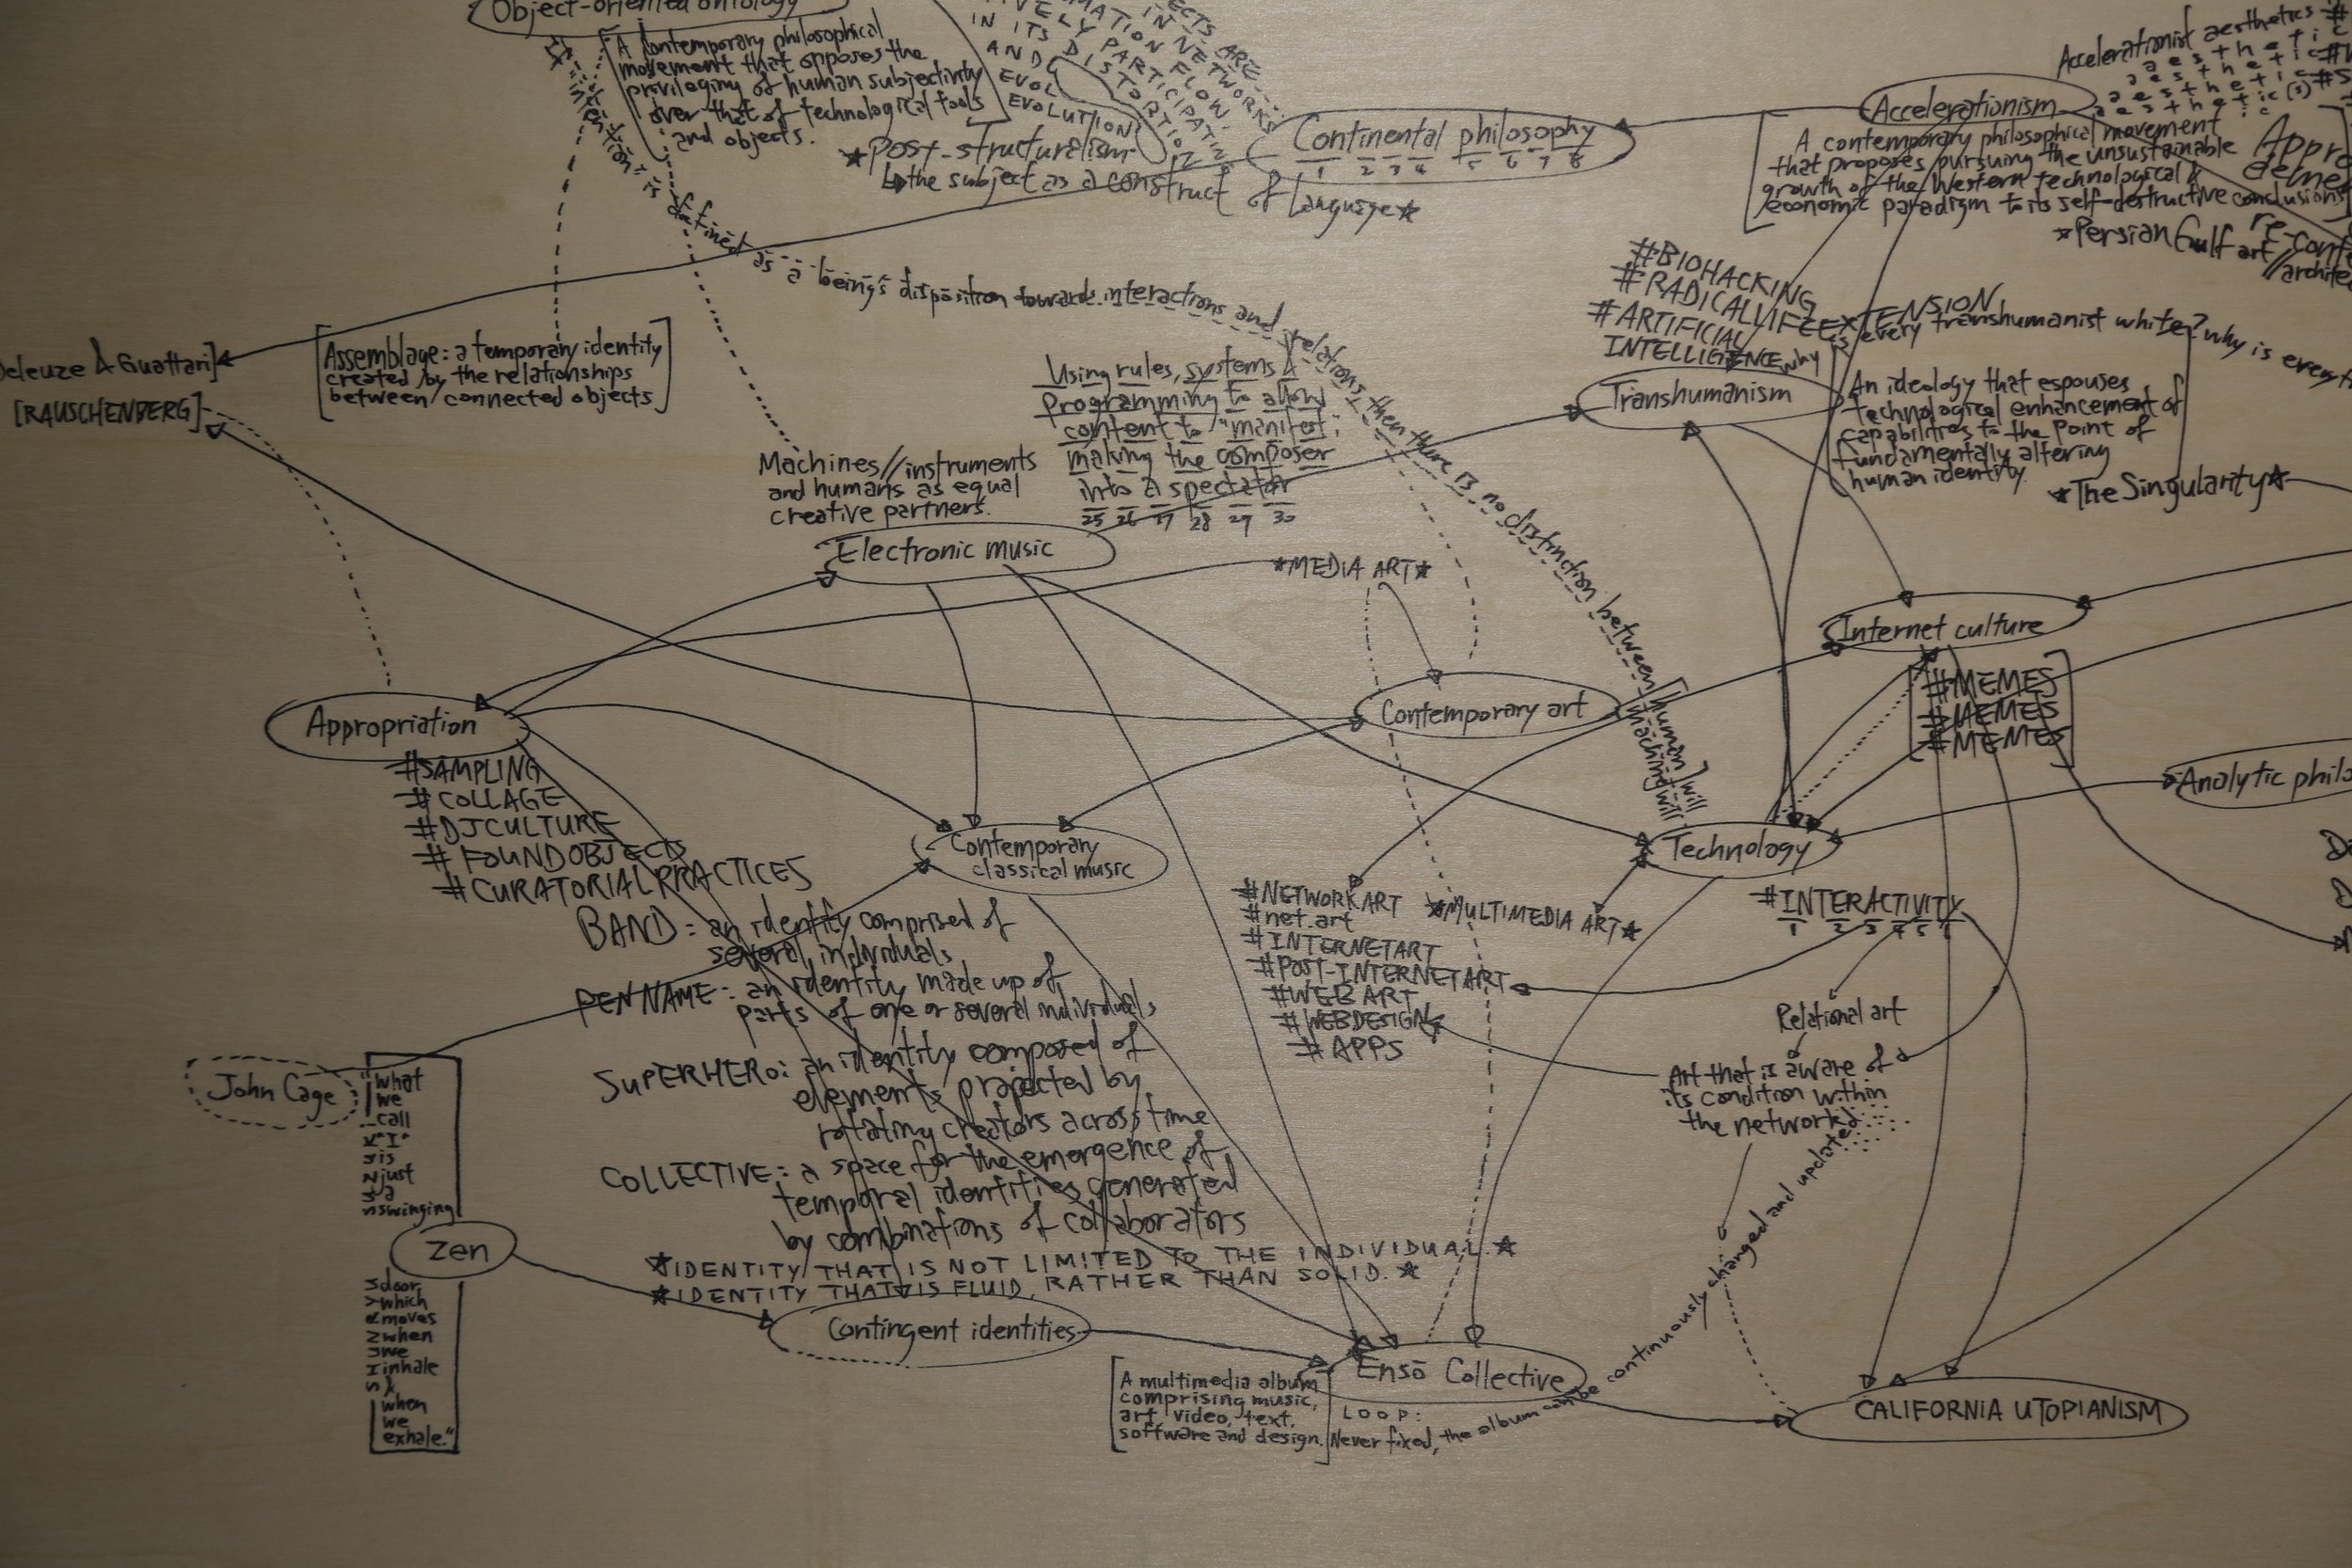 Object-oriented ontology
A contemporary philosophical
movement that opposes the
privileging of human subjectivity
over that of technological tools
and objects.
IN ITS DISTORTION
AND
EVOL
EVOLUTION
IN NETWORKS
★Post-structuralism
the subject as a construct of language★
Continental philosophy
1 2 3 4 5 6 7 8
Accelerationist aesthetics #
aesthetic
aesthetic
aesthetic
aesthetic(s)
Accelerationism
A contemporary philosophical movement
that proposes pursuing the unsustainable
growth of the Western technological &
economic paradigm to its self-destructive conclusions
★Persian Gulf art
//archite
If intention is defined as a being's disposition towards interactions and relations then there is no distinction between [human] will
machine will
#BIOHACKING
#RADICALLIFEEXTENSION
#ARTIFICIAL
INTELLIGENCE
why is every transhumanist white? why is every
Transhumanism
An ideology that espouses
technological enhancement of
capabilities to the point of
fundamentally altering
human identity.
★The Singularity★
Deleuze & Guattari]
[RAUSCHENBERG]
[Assemblage: a temporary identity
created by the relationships
between connected objects]
Using rules, systems &
programming to allow
content to "manifest,"
making the composer
into a spectator
25 26 27 28 29 30
Machines//instruments
and humans as equal
creative partners.
Electronic music
★MEDIA ART★
Internet culture
#MEMES
#MEMES
#MEMES
Contemporary art
Appropriation
#SAMPLING
#COLLAGE
#DJCULTURE
#FOUNDOBJECTS
#CURATORIALPRACTICES
Analytic philo
Contemporary
classical music
Technology
#INTERACTIVITY
1 2 3 4 5 6
#NETWORKART
#net.art
#INTERNETART
#POST-INTERNETART
#WEBART
#WEBDESIGN
#APPS
★MULTIMEDIA ART★
Relational art
Art that is aware of
its condition within
the network
BAND: an identity comprised of
several individuals
PEN NAME: an identity made up of
parts of one or several individuals
SUPERHERO: an identity composed of
elements projected by
rotating creators across time
COLLECTIVE: a space for the emergence of
temporal identities generated
by combinations of collaborators
★IDENTITY THAT IS NOT LIMITED TO THE INDIVIDUAL.★
★IDENTITY THAT IS FLUID, RATHER THAN SOLID.★
John Cage
"what
we
call
"I"
is
just
a
swinging
Zen
door
which
moves
when
we
inhale
&
when
we
exhale."
Contingent identities
Ensō Collective
[A multimedia album
comprising music,
art, video, text,
software and design.]
LOOP:
Never fixed, the album can be continuously changed and updated
CALIFORNIA UTOPIANISM